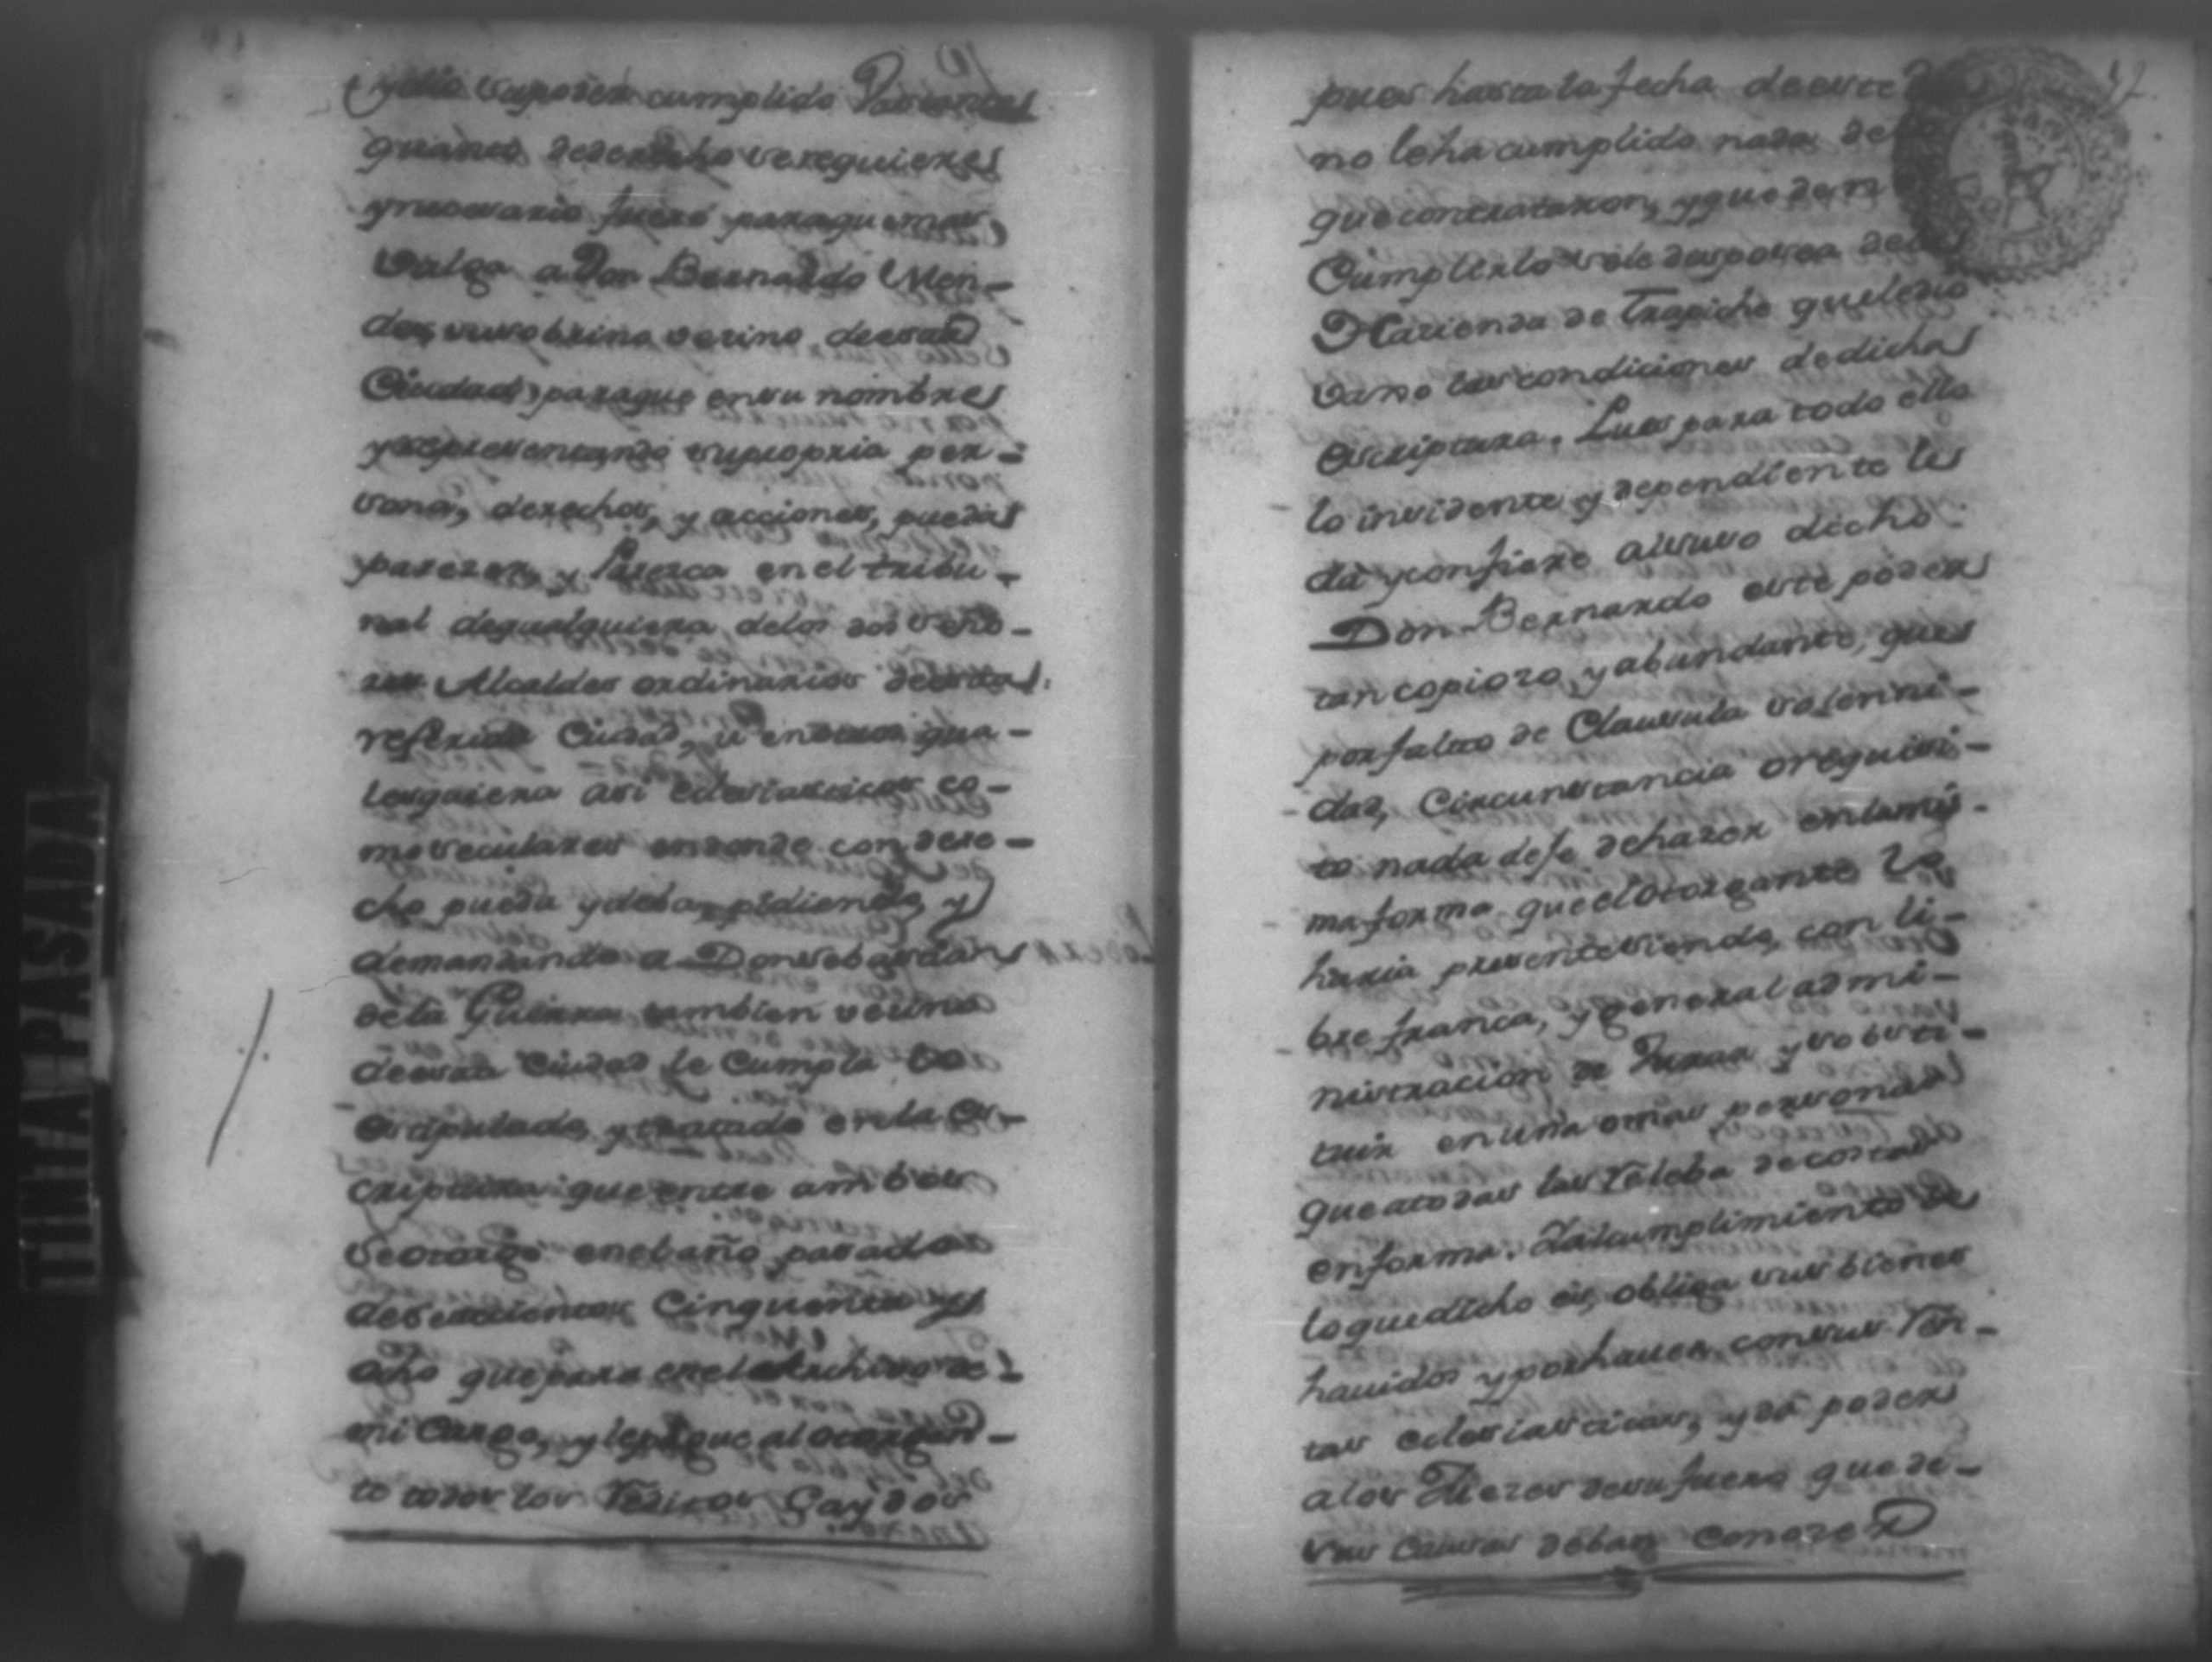 y dió su poder cumplido Vastante
quanto de derecho se requiere
y nesesario fuere para que mas
Valga a Don Bernardo Men-
des, su sobrino vezino de esta
Ciudad, para que en su nombre
y representando su propria per-
sona, derechos, y acciones, pueda
parezer, y Paresca en el tribu-
nal de qualquiera de los dos Seño-
res Alcaldes ordinarios de esta
referida Ciudad, u en otros qua-
lesquiera asi eclesiasticos co-
mo seculares en donde con dere-
cho pueda y deba, pidiendo, y
demandando a Don Sebastian
de la Guerra tambien vezino
de esta Ciudad le Cumpla lo
estipulado, y tratado en la es-
criptura que entre ambos
se otorgó en el año pasado
de setecientos Cinquenta y
ocho que para en el Archivo de
mi Cargo, y le pague al otorgan-
te todos los Reditos Caydos
pues hasta la fecha de este
no le ha cumplido nada de
que contrataron, y que de n
Cumplirlo se le desposea de
Hazienda de Trapiche que le dio
vajo las condiciones de dicha
escriptura. Pues para todo ello
lo insidente y dependiente le
da y confiere al suso dicho
Don Bernardo este poder
tan copiozo, y abundante, que
por falta de Clausula solemni-
dad, Circunstancia o requisi-
to nada deje de hazer en la mis-
ma forma que el otorgante lo
haria presente siendo, con li-
bre franca, y general admi-
nistracion de Jurar y sobsti-
tuir en una o mas personas
que a todas las releba de costas
en forma. Y al cumplimiento de
lo que dicho es, obliga sus bienes
hauidos y por hauer con sus Ren-
tas eclesiasticas, y da poder
a los Juezes de su fuero que de
sus causas deban conozer